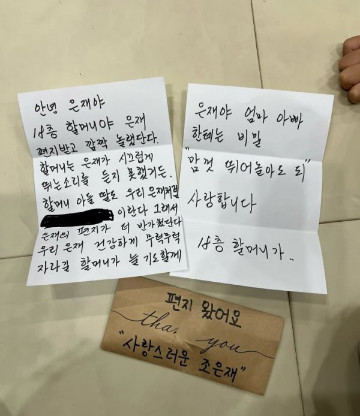 안녕 은재야
18층 할머니야 은재
편지받고 깜짝 놀랬단다.
할머니는 은재가 시끄럽게
뛰는소리를 듣지 못했거든.
할머니 아들 딸도 우리 은재처럼
이란다 그래서
은재의 편지가 더 반가웠단다
우리 은재 건강하게 무럭무럭
자라길 할머니가 늘 기도할게
은재야 엄마 아빠
한테는 비밀
"맘껏 뛰어놀아도 되"
사랑합니다
18층 할머니가..
편지 왔어요
thank you
"사랑스러운 조은재"